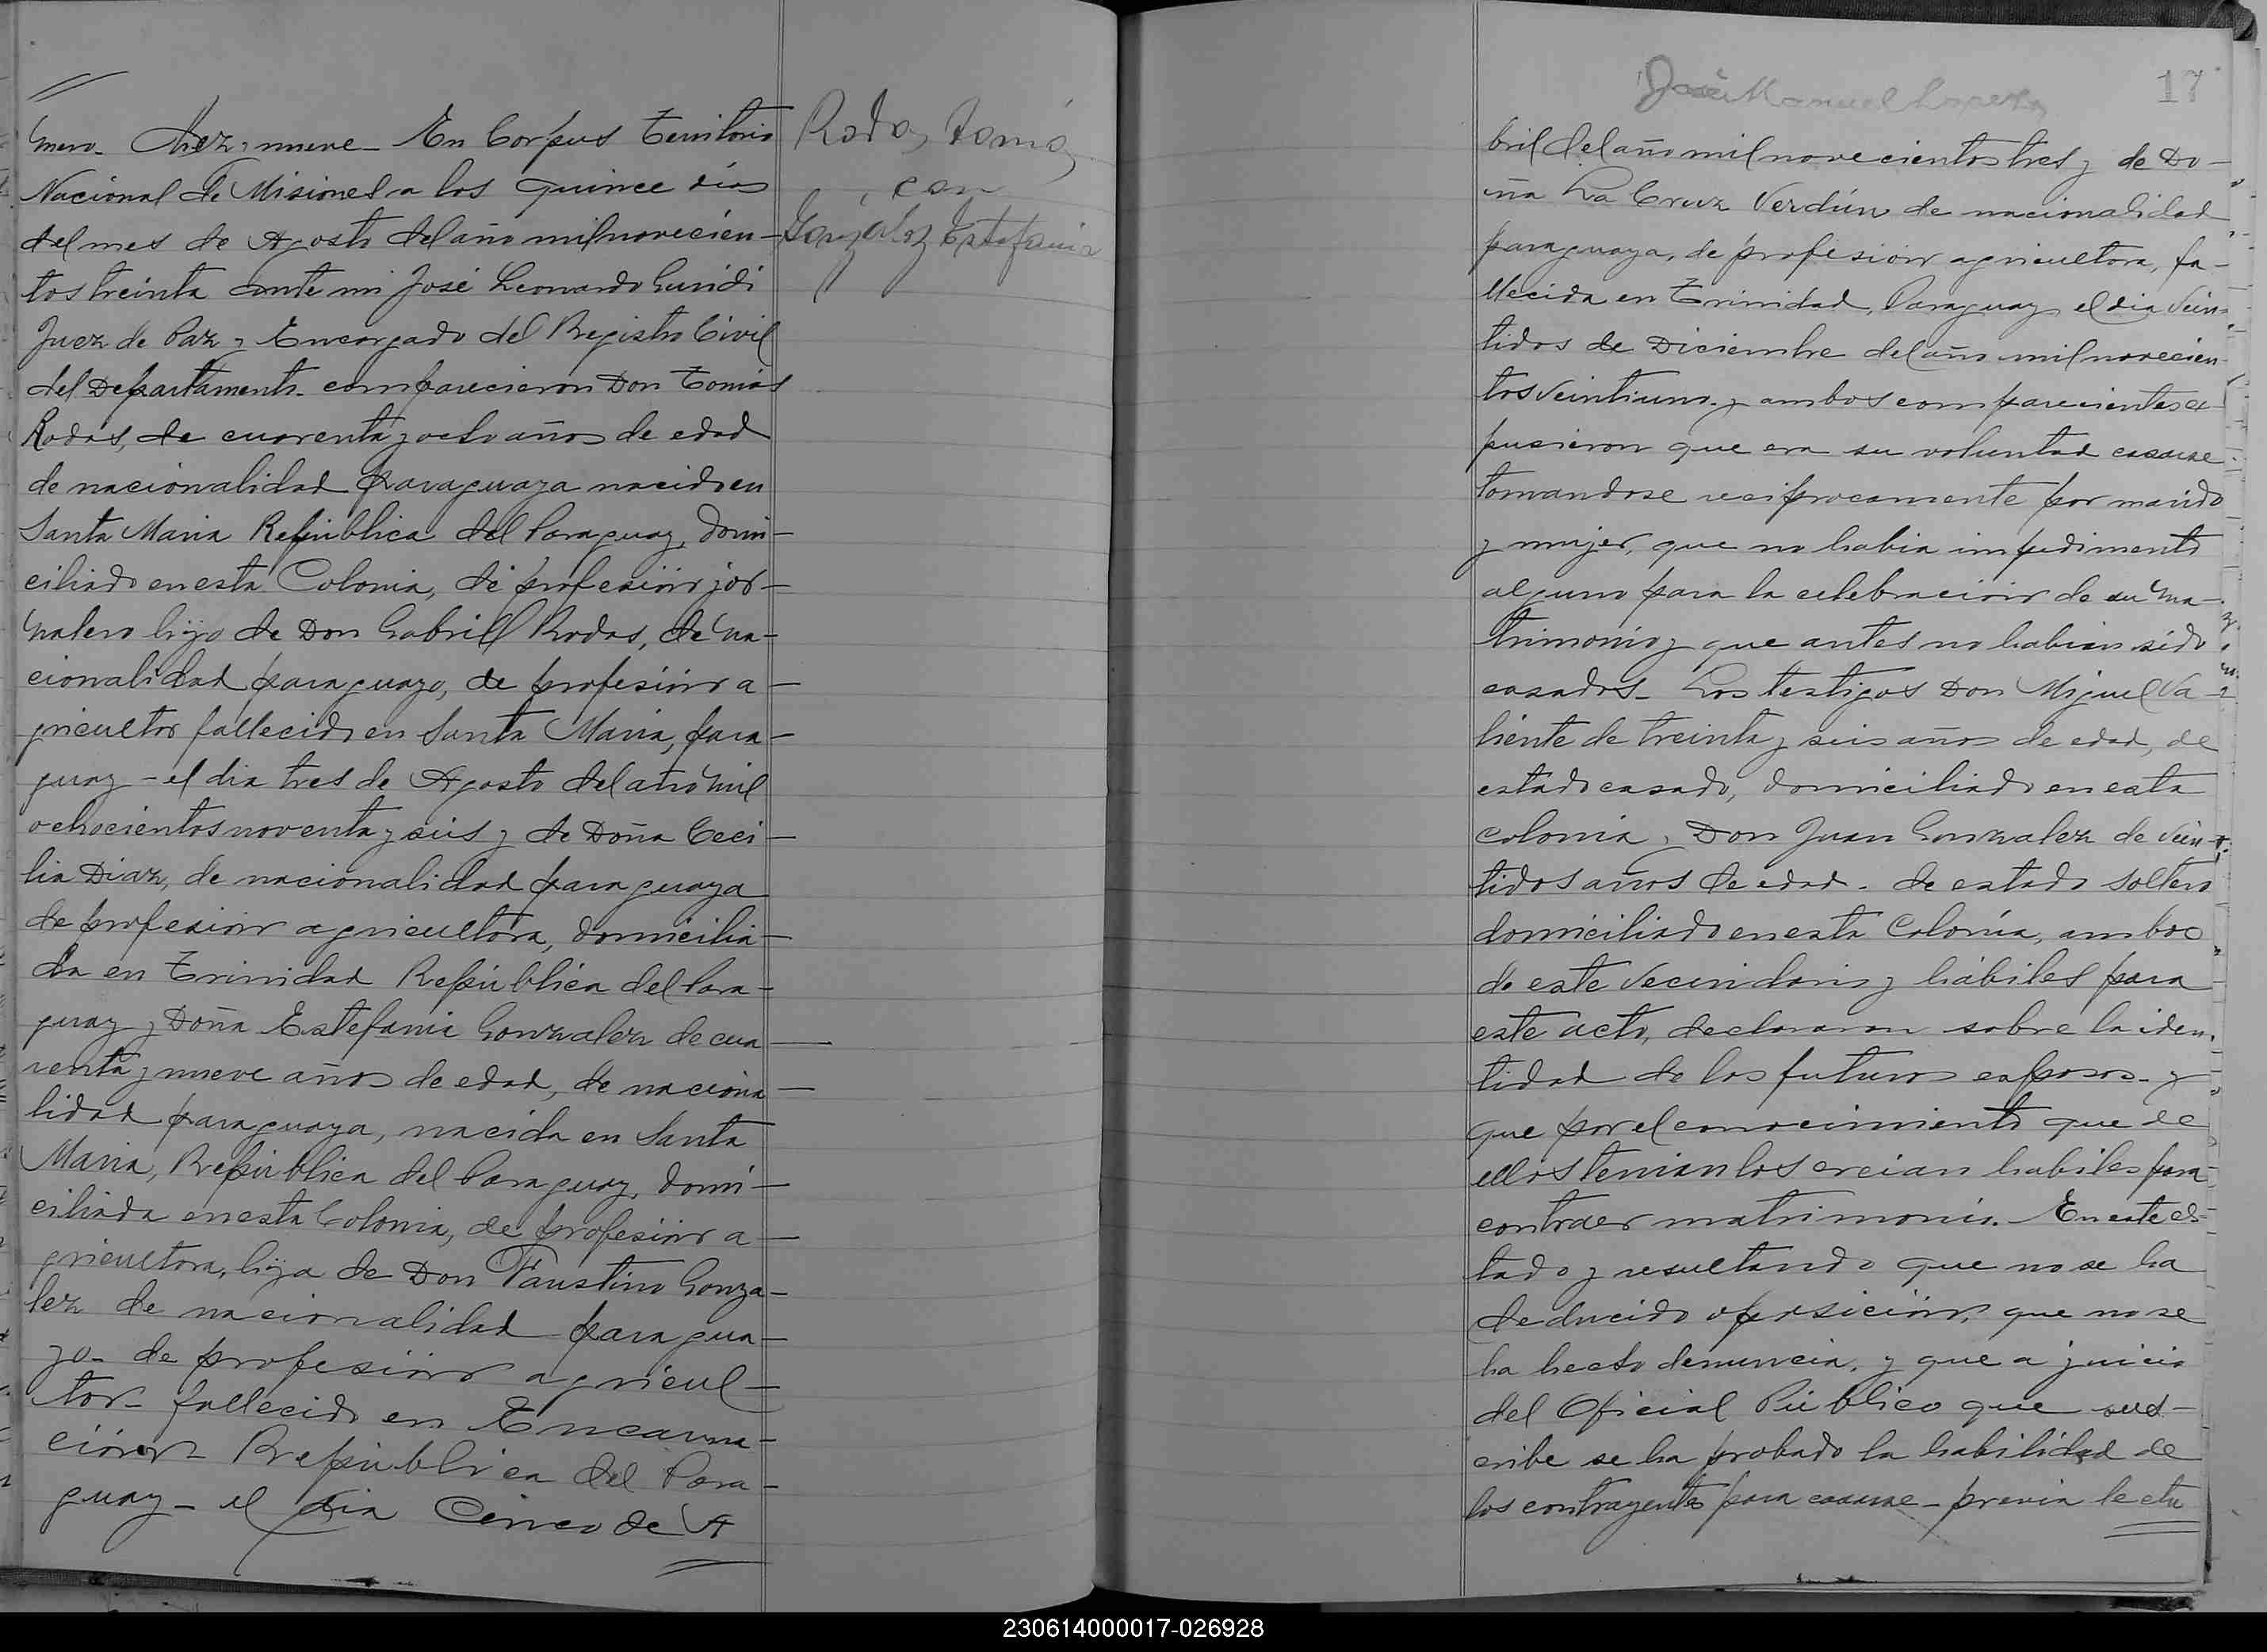 mero. Diez y nueve - En Corpus Territorio
Nacional de Misiones a los quince dias
del mes de Agosto del año mil novecien-
tos treinta ante mi José Leonardo Guridi
Juez de Paz y Encargado del Registro Civil
del Departamento. comparecieron Don Tomás
Rodas, de cuarenta y ocho años de edad
de nacionalidad paraguaya nacido en
Santa Maria República del Paraguay, domi-
ciliado en esta Colonia, de profesión jor-
nalero hijo de Don Gabriel Rodas, de na-
cionalidad paraguayo, de profesión a-
gricultor fallecido en Santa Maria, para-
guay - el dia tres de Agosto del año mil
ochocientos noventa y seis y de Doña Ceci-
lia Diaz, de nacionalidad paraguaya
de profesión agricultora, domicilia-
da en Trinidad República del Para-
guay y Doña Estefania Gonzalez de cua-
renta y nueve años de edad, de naciona-
lidad paraguaya, nacida en Santa
Maria, República del Paraguay, domi-
ciliada en esta Colonia, de profesión a-
gricultora, hija de Don Faustino Gonza-
lez de nacionalidad paragua-
yo- de profesión agricul-
tor- fallecido en Encarna-
ción- República del Para-
guay - el dia Cinco de A
Rodas, Tomás
con
González Estefania
17
José Manuel
bril del año mil novecientos tres y de Do-
ña La Cruz Verdún de nacionalidad
paraguaya, de profesión agricultora, fa-
llecida en Trinidad, Paraguay el dia Vein-
tidos de Diciembre del año mil novecien-
tos veintiuno. y ambos comparecientes ex-
pusieron que era su voluntad casarse
tomandose reciprocamente por marido
y mujer, que no habia impedimento
alguno para la celebración de su ma-
trimonio y que antes no habian sido
casados. Los testigos Don Miguel Va-
liente de treinta y seis años de edad, de
estado casado, domiciliado en esta
colonia, Don Juan Gonzalez de vein-
tidos años de edad. de estado soltero
domiciliado en esta Colonia, ambos
de este vecindario y hábiles para
este acto, declararon sobre la iden-
tidad de los futuros esposos. y
que por el conocimiento que de
ellos tenian los creian habiles para
contraer matrimonio. En este es-
tado y resultando que no se ha
deducido oposición, que no se
ha hecho denuncia, y que a juicio
del Oficial Público que sus-
cribe se ha probado la habilidad de
los contrayentes para casarse - previa lectu
230614000017-026928